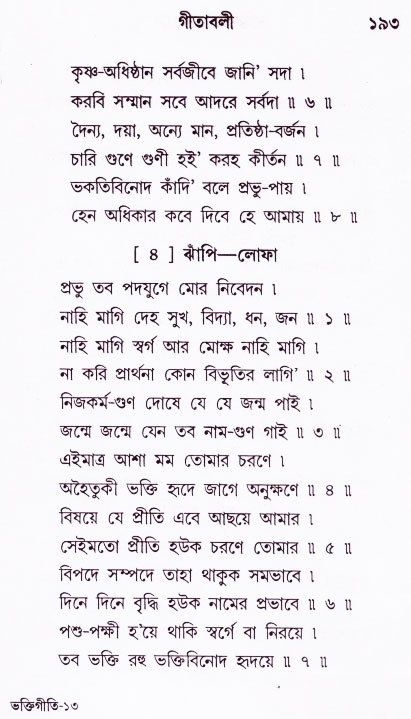 গীতাবলী ১৯৩
কৃষ্ণ-অধিষ্ঠান সর্বজীবে জানি' সদা ।
করবি সম্মান সবে আদরে সর্বদা ॥ ৬ ॥
দৈন্য, দয়া, অন্যে মান, প্রতিষ্ঠা-বর্জন ।
চারি গুণে গুণী হই' করহ কীর্তন ॥ ৭ ॥
ভকতিবিনোদ কাঁদি' বলে প্রভু-পায় ।
হেন অধিকার কবে দিবে হে আমায় ॥ ৮ ॥
[ ৪ ] ঝাঁপি—লোফা
প্রভু তব পদযুগে মোর নিবেদন ।
নাহি মাগি দেহ সুখ, বিদ্যা, ধন, জন ॥ ১ ॥
নাহি মাগি স্বর্গ আর মোক্ষ নাহি মাগি ।
না করি প্রার্থনা কোন বিভূতির লাগি' ॥ ২ ॥
নিজকর্ম-গুণ দোষে যে যে জন্ম পাই ।
জন্মে জন্মে যেন তব নাম-গুণ গাই ॥ ৩ ॥
এইমাত্র আশা মম তোমার চরণে ।
অহৈতুকী ভক্তি হৃদে জাগে অনুক্ষণে ॥ ৪ ॥
বিষয়ে যে প্রীতি এবে আছয়ে আমার ।
সেইমতো প্রীতি হউক চরণে তোমার ॥ ৫ ॥
বিপদে সম্পদে তাহা থাকুক সমভাবে ।
দিনে দিনে বৃদ্ধি হউক নামের প্রভাবে ॥ ৬ ॥
পশু-পক্ষী হ'য়ে থাকি স্বর্গে বা নিরয়ে ।
তব ভক্তি রহু ভক্তিবিনোদ হৃদয়ে ॥ ৭ ॥
ভক্তিগীতি-১৩